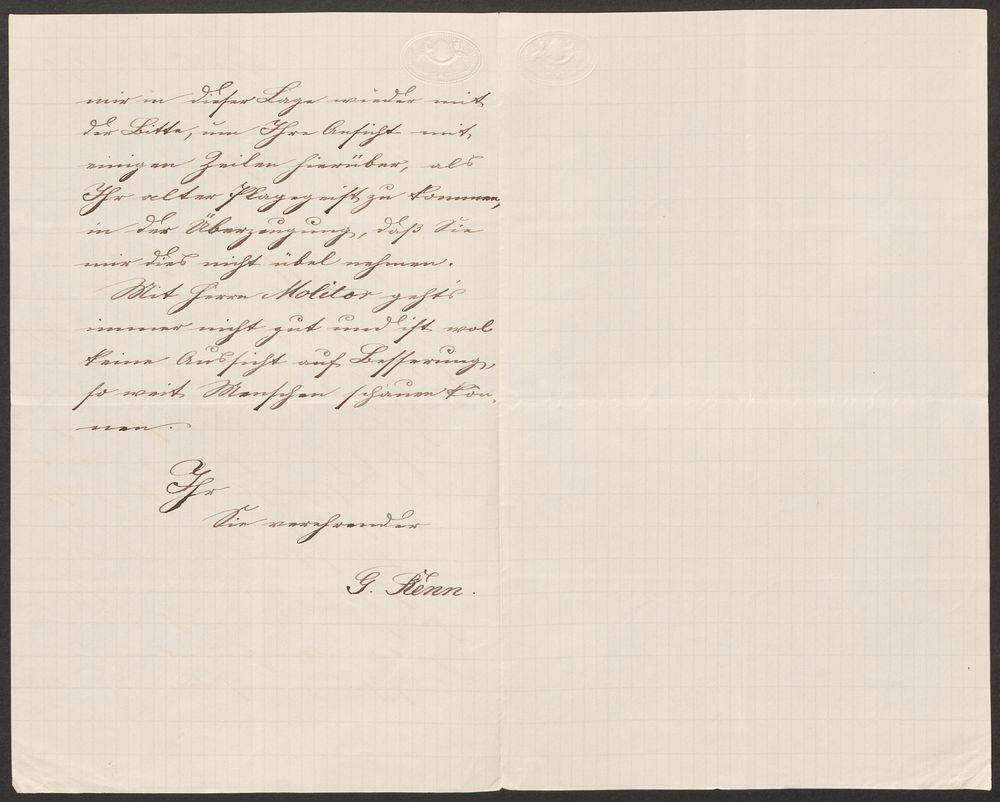 mir in dieser Lage wieder mit
der Bitte, um Ihre Ansicht mit
einigen Zeilen hierüber, als
Ihr alter Plagegeist zu kommen,
in der Überzeugung, daß Sie
mir dies nicht übel nehmen.
Mit Herrn Molitor geht's
immer nicht gut und ist wol
keine Aussicht auf Besserung,
so weit Menschen schauen kön-
nen.
Ihr
Sie verehrender
G. Renn.